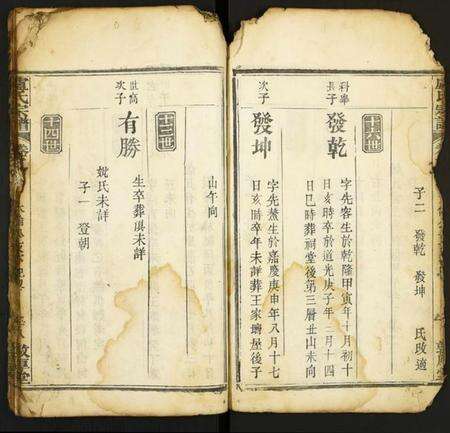 子二 發乾 發坤 氏改適
十六世
科舉長子
發乾
字先容生於乾隆甲寅年十月初十
日亥時卒於道光庚子年三月十四
日巳時葬祠堂後第三層丑山未向
次子
發坤
字先薰生於嘉慶庚申年八月十七
日亥時卒年未詳葬王家塆屋後子
山午向
十三世
世高次子
有勝
生卒葬俱未詳
妣氏未詳
子一 登朝
十四世
盧氏宗譜
敦厚堂